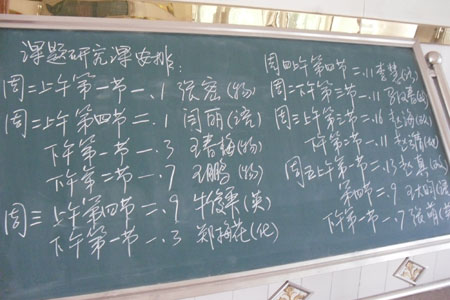 课题研究课安排：
周二上午第一节一.1 张宏(物)
周二上午第四节二.1 闫丽(语)
下午第一节一.3 王春梅(物)
下午第二节一.7 王鹏(物)
周三上午第四节二.9 牛俊果(英)
下午第一节一.3 郑梅花(化)
周四上午第四节二.11 李
周二下午第三节一.11
周三上午第二节二.16 赵
下午第二节一.11 赵
周五上午第二节一.13 赵
第四节二.9 王
下午第一节一.7 张萌